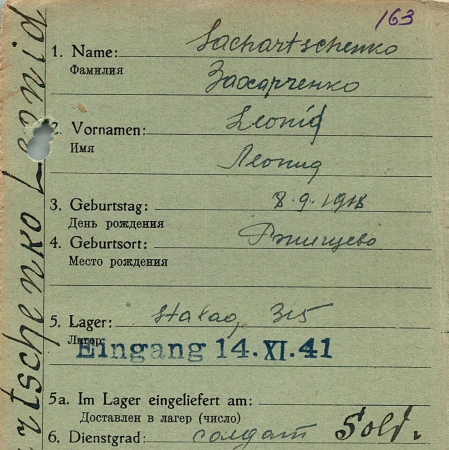 163
1. Name: Sachartschenko
Фамилия Захарченко
2. Vornamen: Leonid
Имя Леонид
3. Geburtstag: 8.9.1918
День рождения
4. Geburtsort: Ржищево
Место рождения
5. Lager: Stalag 315
Лагерь Eingang 14.XI.41
5a. Im Lager eingeliefert am:
Доставлен в лагерь (число)
6. Dienstgrad: солдат Sold.
rtschenko Leonid